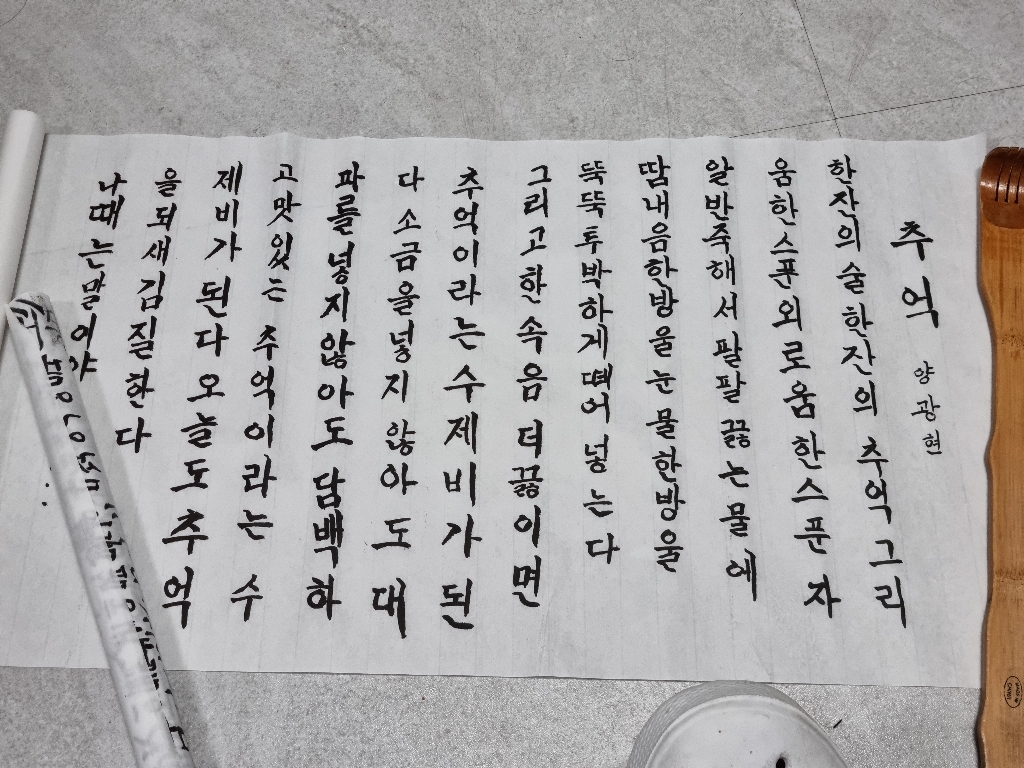 추억
양광현
한잔의술한잔의추억그리
움한스푼외로움한스푼자
알반죽해서팔팔끓는물에
땀내음한방울눈물한방울
뚝뚝투박하게떼어넣는다
그리고한속음더끓이면
추억이라는수제비가된
다소금을넣지않아도대
파를넣지않아도담백하
고맛있는추억이라는수
제비가된다오늘도추억
을되새김질한다
나때는말이야